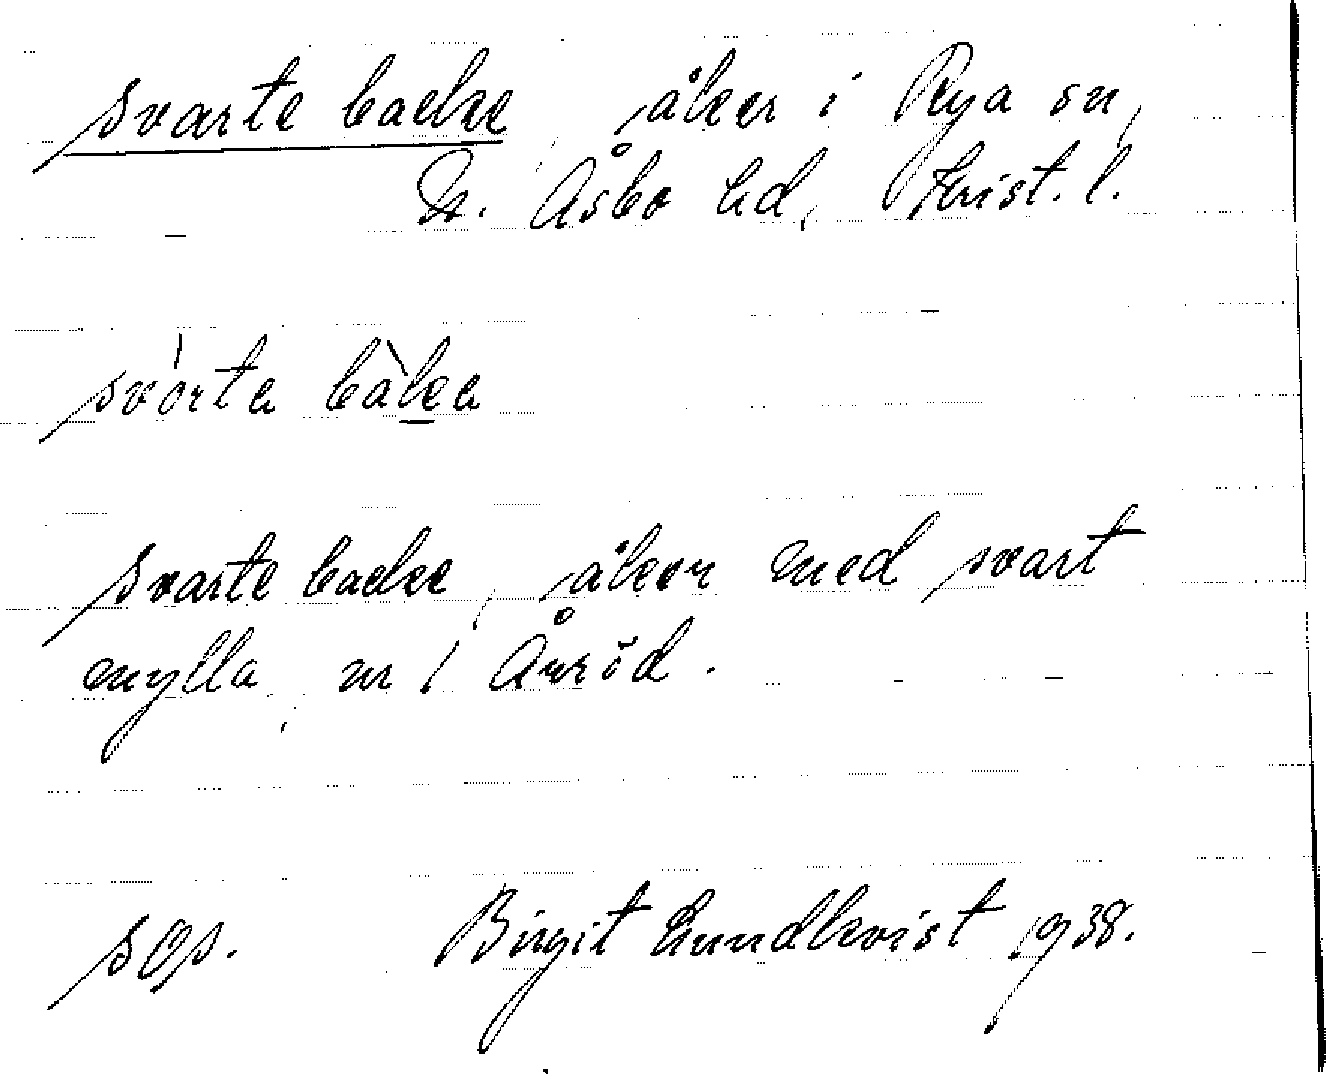 svarte backe, åker i Rya sn,
N. Åsbo hd, Krist. l.
svórta bàka
svarte backe, åker med svart
mylla, nr 1 Årröd.
sgs. Birgit Lundkvist 1938.